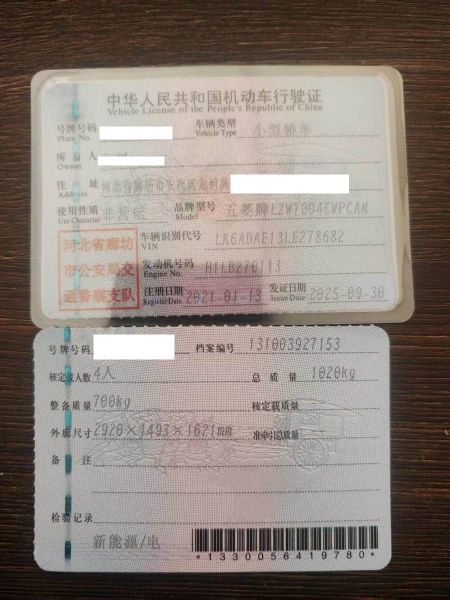 中华人民共和国机动车行驶证
Vehicle License of the People's Republic of China
号牌号码 车辆类型 小型轿车
Plate No. Vehicle Type
所有人
Owner
住址 河北省廊坊市安次区
Address
使用性质 非营运 品牌型号 五菱牌LZW7004EVPCAM
Use Character Model
河北省廊坊市公安局交通警察支队
车辆识别代号 LK6ADAE13LE278682
VIN
发动机号码 H1LB270113
Engine No.
注册日期 2021-01-13 发证日期 2025-09-30
Register Date Issue Date
号牌号码 档案编号 131003927153
核定载人数 4人 总质量 1020kg
整备质量 700kg 核定载质量
外廓尺寸 2920×1493×1621mm 准牵引总质量 --
备注
检验记录
新能源/电
*1330056419780*